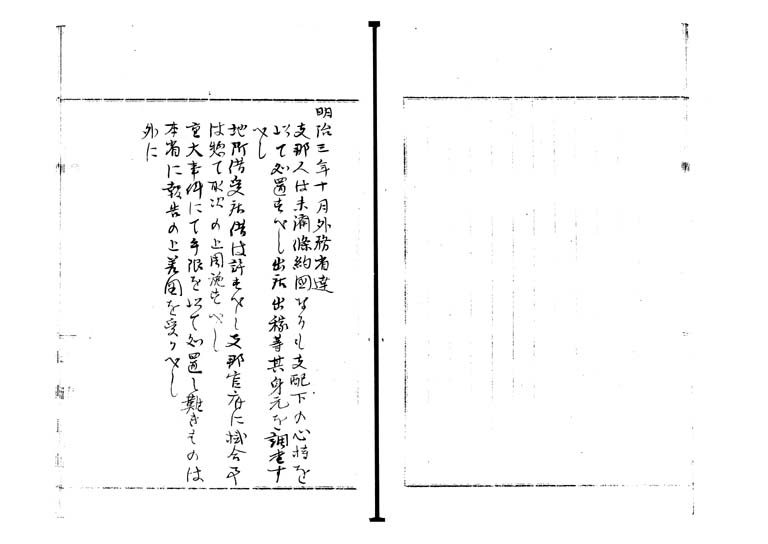 明治三年十月外務省達
支那人は未濟條約國なりも支配下の心持を
以て処置すべし出店出稼等其身元を調査す
べし
地所借受店借は許すべし支那官府に掛合
は惣て取次の上周施すべし
重大事件にて手限を以て処置し難きものは
本省に報告の上差図を受くべし
外に